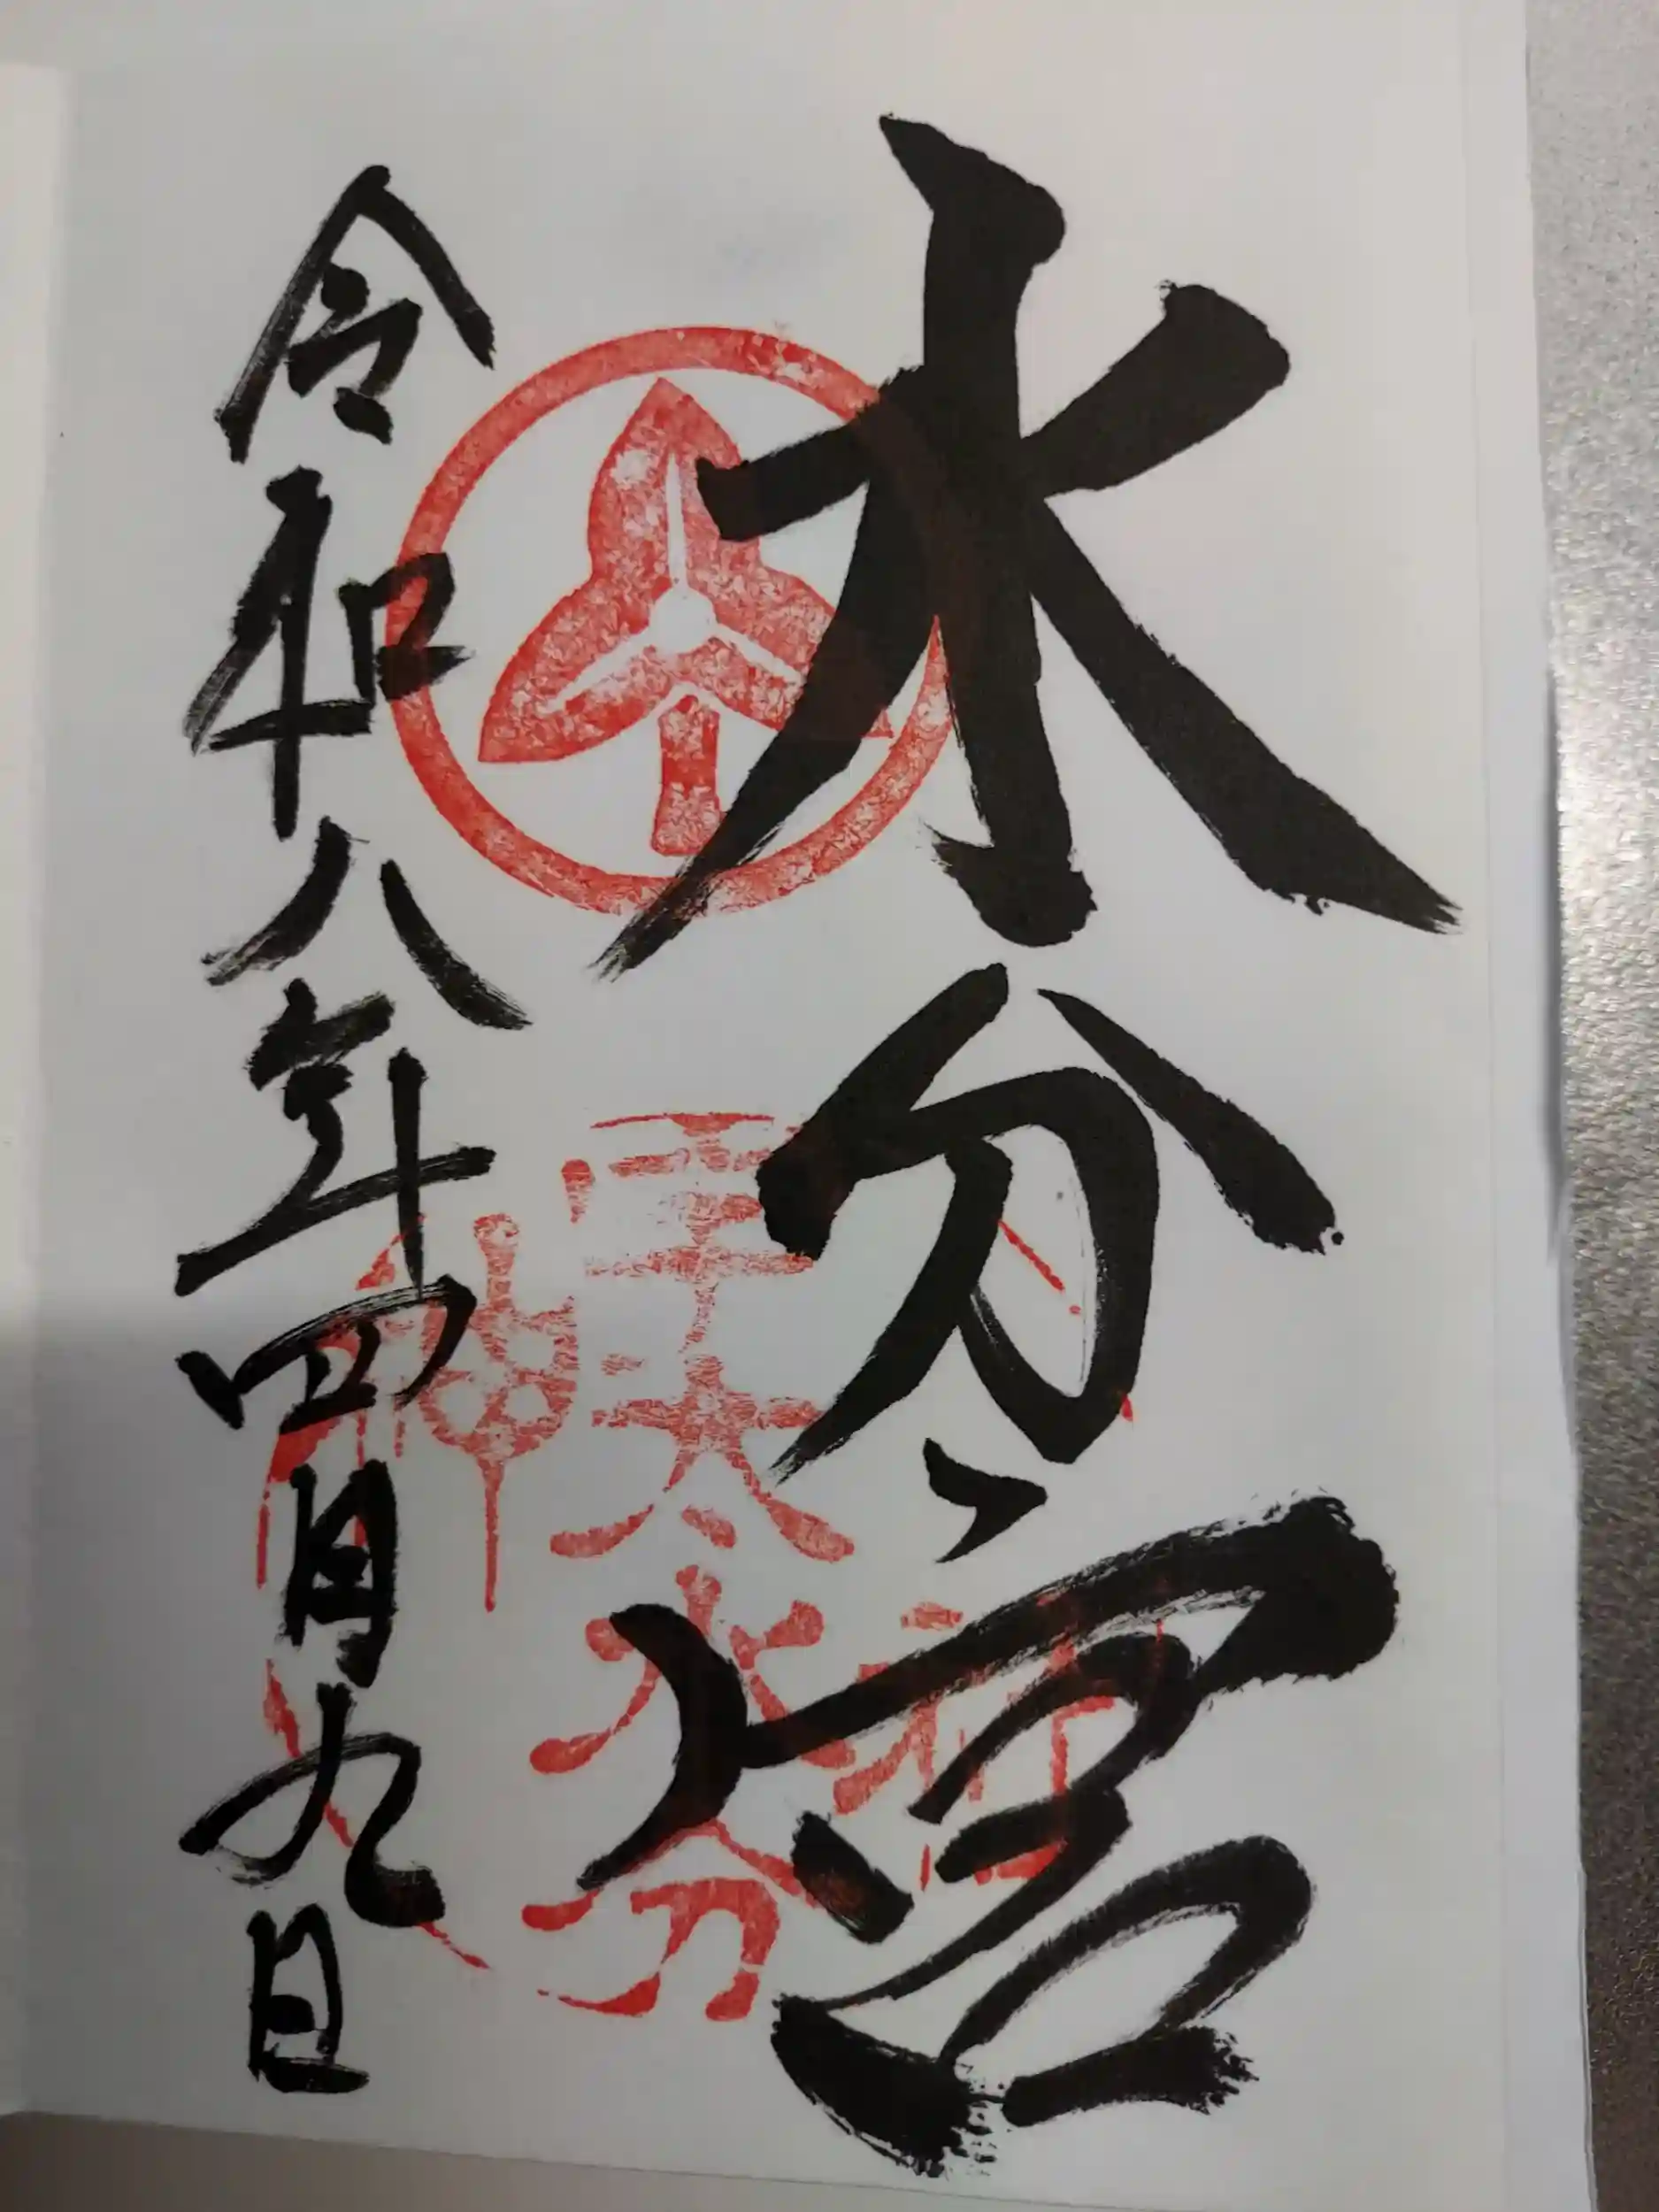 水分宮
宇太水分
神
令和八年四月九日